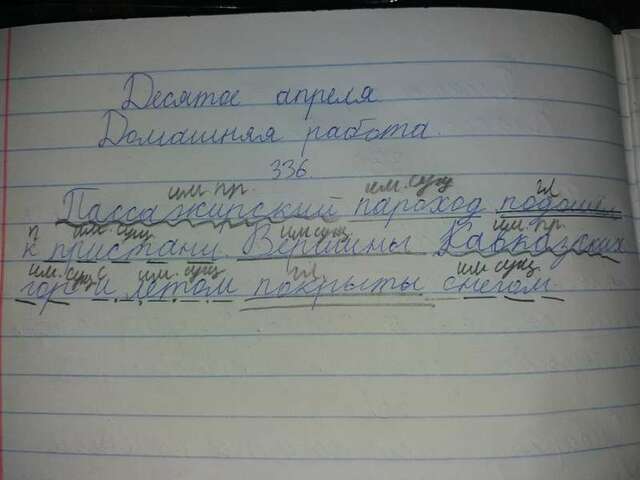 Десятое апреля
Домашняя работа.
336.
им. пр. им. сущ гл
Пассажирский пароход подошёл
п им. сущ им сущ им. пр.
к пристани. Вершины Кавказских
им. сущ с им. сущ гл им сущ
гор и летом покрыты снегом.